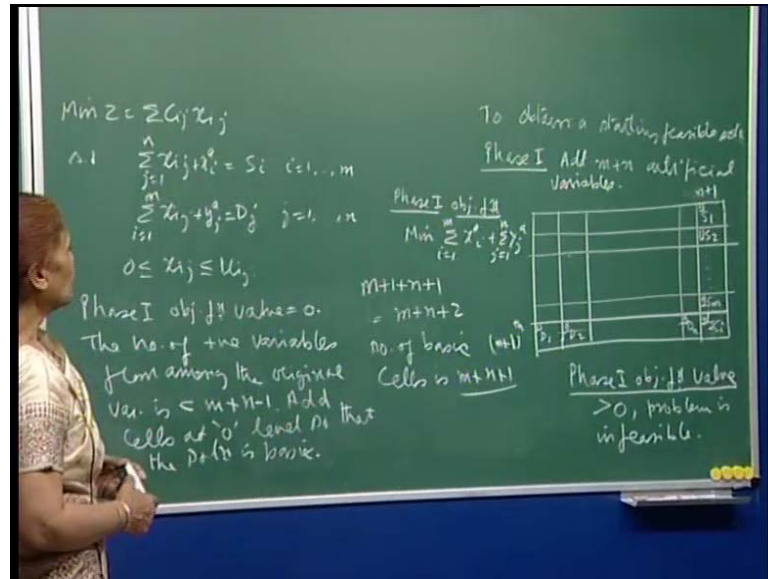 Min Z = Σ Cij xij
n
s.t Σ xij + xiᵃ = Si i=1, .., m
j=1
m
Σ xij + yjᵃ = Dj j=1, .., n
i=1
0 ≤ xij ≤ Uij
Phase I obj. fn value = 0.
The no. of +ve variables
from among the original
var. is < m+n-1. Add
cells at '0' level so that
the soln is basic.
Phase I obj. fn
m n
Min Σ xiᵃ + Σ yjᵃ
i=1 j=1
m+1+n+1
= m+n+2
no. of basic
cells is m+n+1
To obtain a starting feasible soln
Phase I Add m+n artificial
variables.
n+1
S1
S2
Sm
(m+1)th
D1 D2 Dn
Phase I obj. fn value
>0, problem is
infeasible.